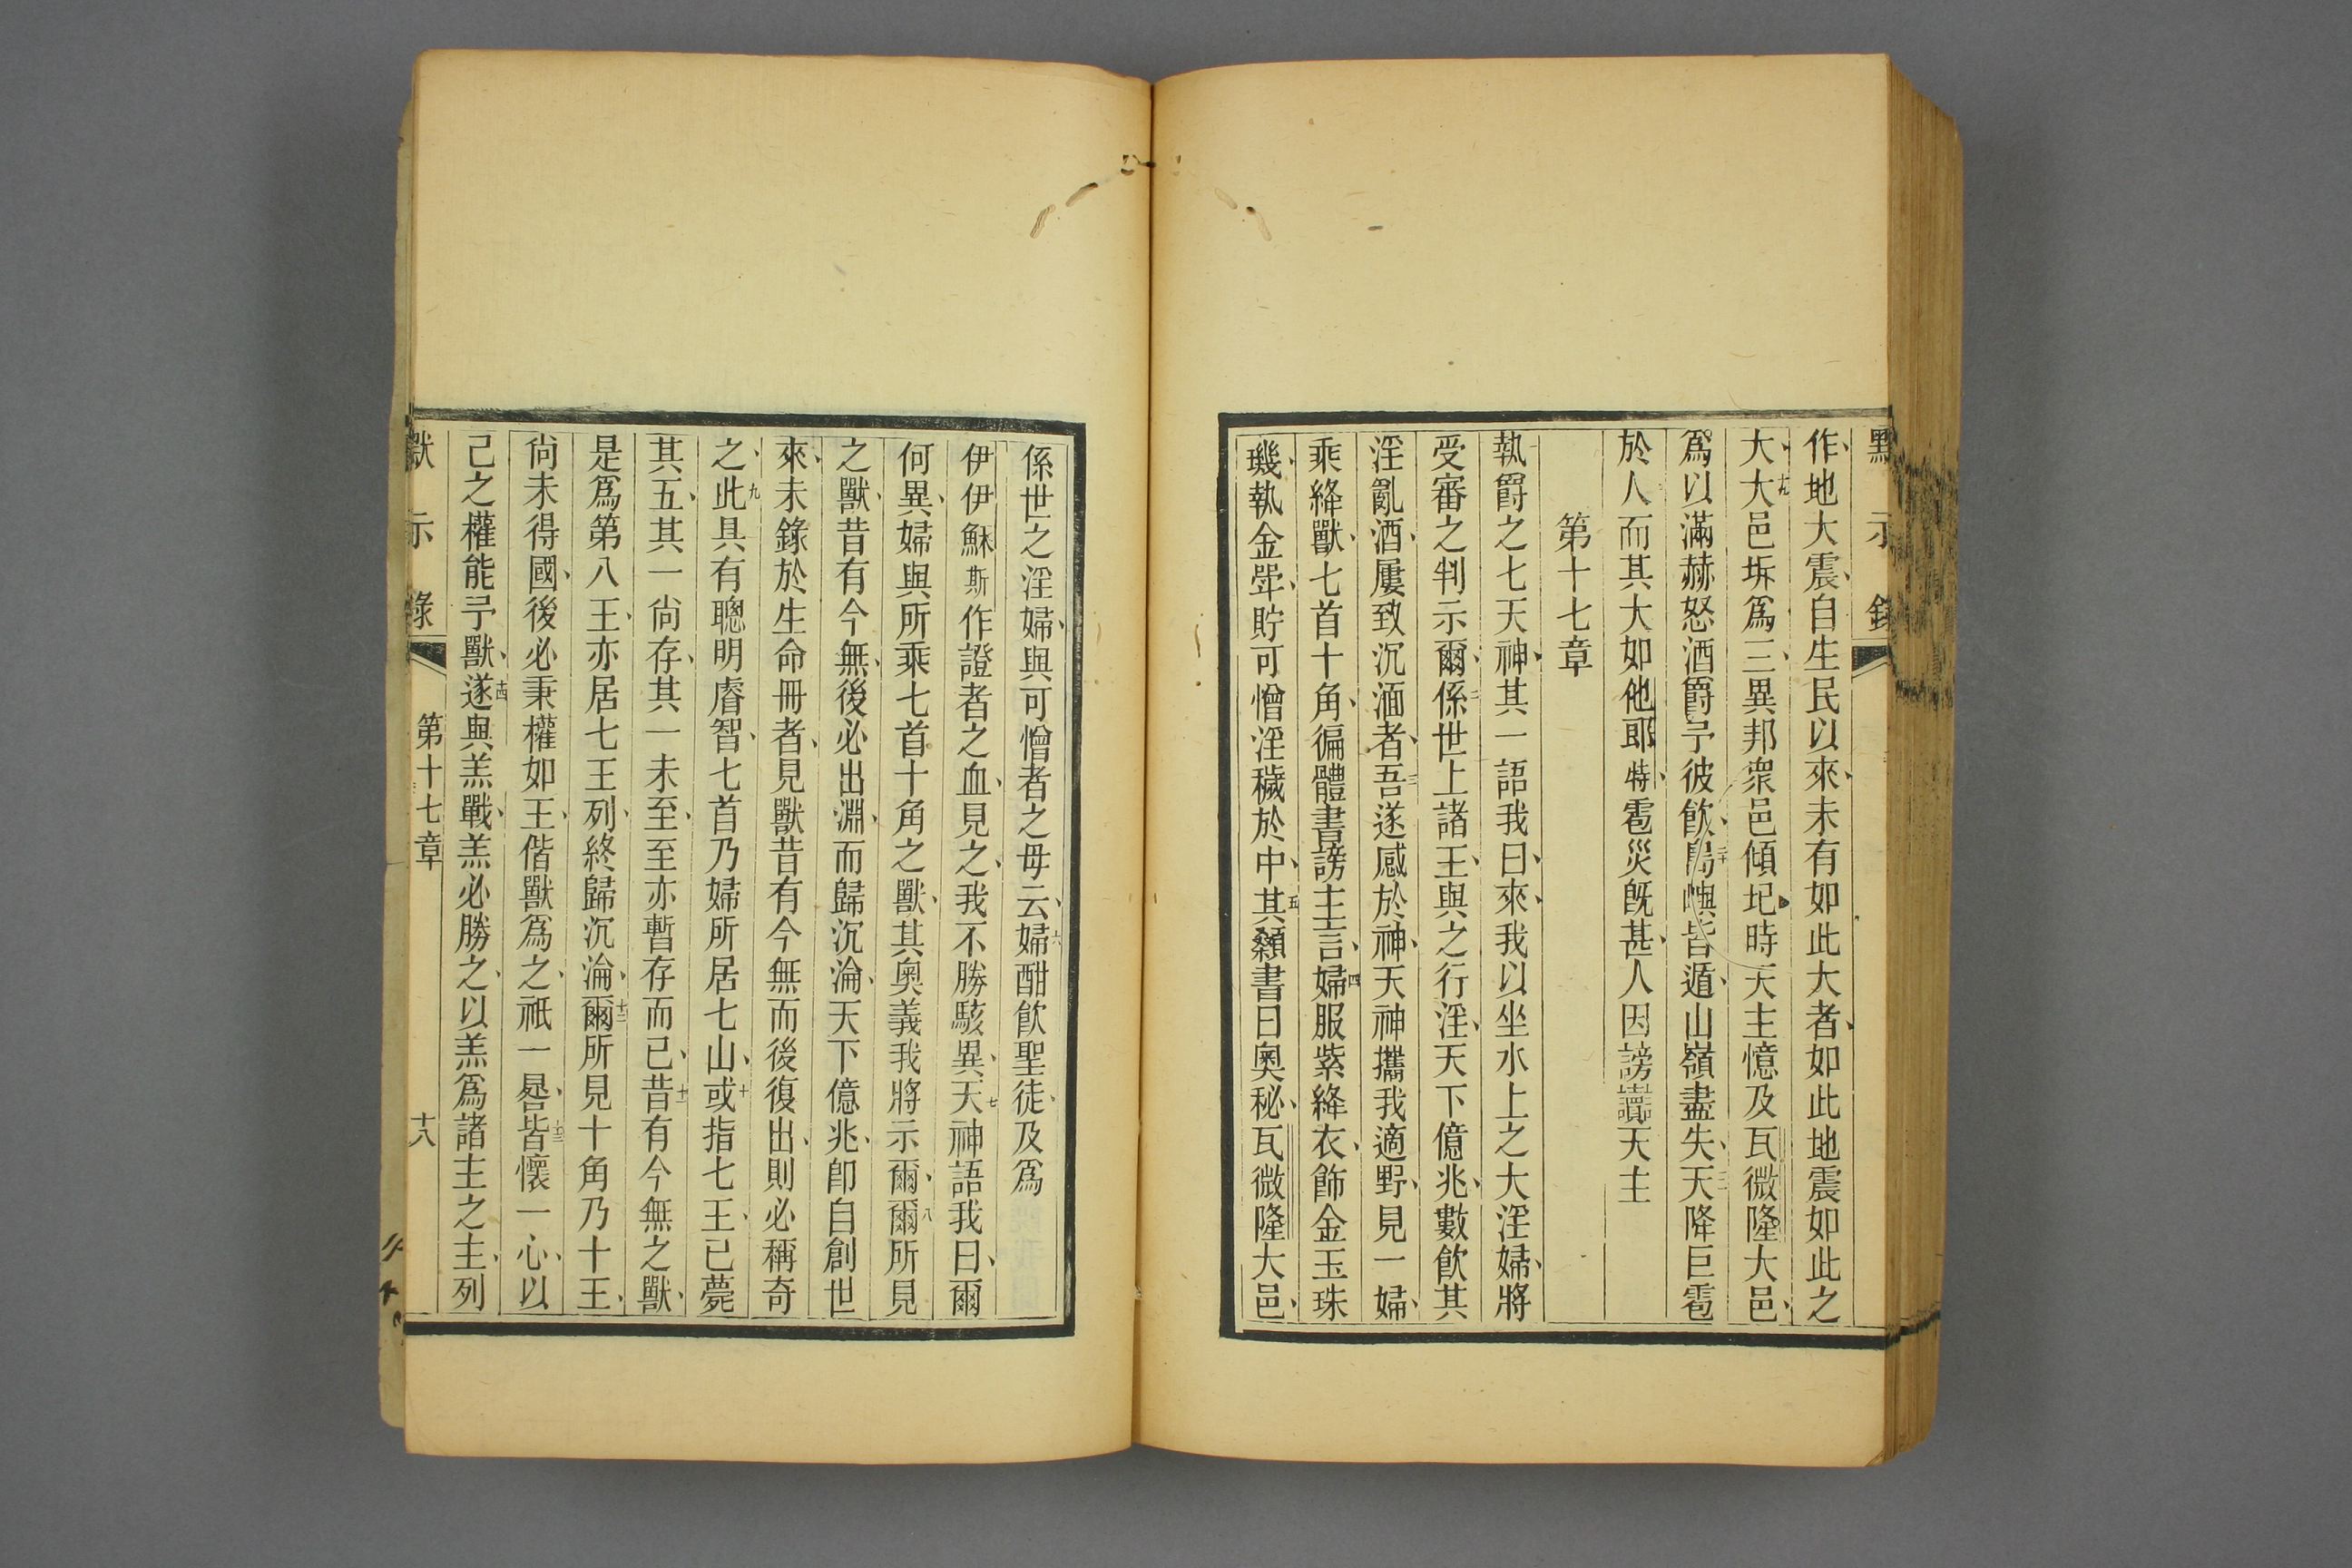 默示錄
作、地大震、自生民以來、未有如此大者、如此地震如此之
大、十九大邑坼爲三、異邦衆邑傾圮、時天主憶及瓦微隆大邑、
爲以滿赫怒酒爵予彼飲、二十島嶼皆遁、山嶺盡失、二一天降巨雹
於人、而其大如他耶特、雹災旣甚、人因謗讟天主
第十七章
一執爵之七天神、其一語我曰、來、我以坐水上之大淫婦、將
受審之判示爾、二係世上諸王、與之行淫、天下億兆、數飲其
淫亂酒、屢致沉湎者、三吾遂感於神、天神攜我適野、見一婦、
乘絳獸、七首十角、徧體書謗主言、四婦服紫絳衣、飾金玉珠
璣、執金斝、貯可憎淫穢於中、五其顙書曰奧秘、瓦微隆大邑、
係世之淫婦、與可憎者之母云、六婦酣飲聖徒、及爲
伊伊穌斯作證者之血、見之、我不勝駭異、七天神語我曰、爾
何異、婦與所乘七首十角之獸、其奧義我將示爾、八爾所見
之獸、昔有今無、後必出淵、而歸沉淪、天下億兆、卽自創世
來、未錄於生命冊者、見獸昔有今無而後復出、則必稱奇
之、九此具有聰明睿智、七首乃婦所居七山、十或指七王、已薨
其五、其一尙存、其一未至、至亦暫存而已、十一昔有今無之獸、
是爲第八王、亦居七王列、終歸沉淪、十二爾所見十角乃十王、
尙未得國、後必秉權如王、偕獸爲之、祇一晷、十三皆懷一心、以
己之權能予獸、十四遂與羔戰、羔必勝之、以羔爲諸主之主、列
默示錄 第十七章 十八